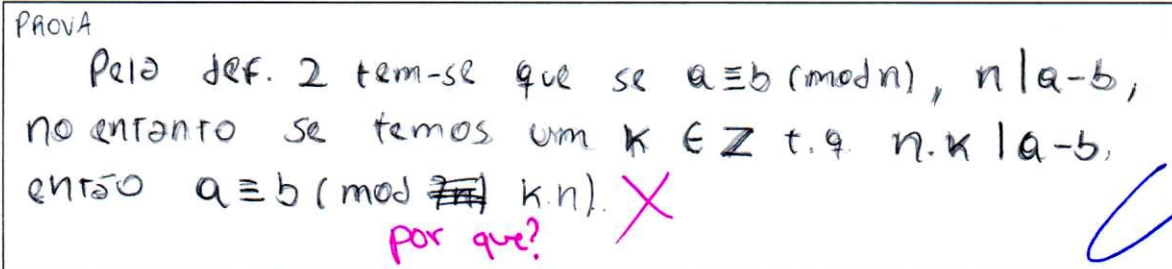 PROVA
Pela def. 2 tem-se que se a ≡ b (mod n), n | a-b,
no entanto se temos um k ∈ Z t.q. n.k | a-b,
então a ≡ b (mod k.n).
por que?